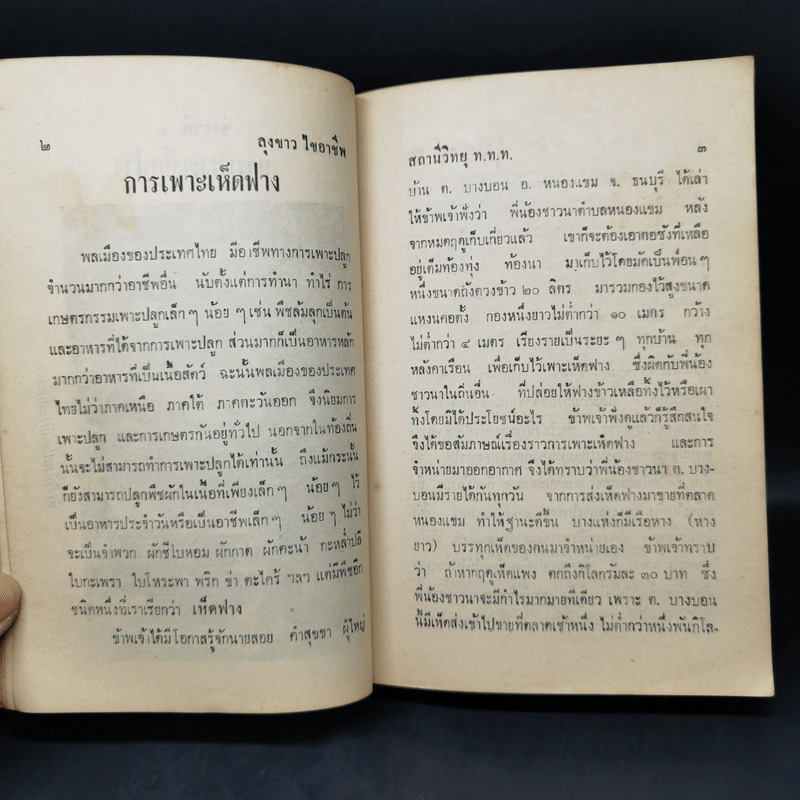 ๒
ลุงขาว ไขอาชีพ
การเพาะเห็ดฟาง
พลเมืองของประเทศไทย มีอาชีพทางการเพาะปลูก
จำนวนมากกว่าอาชีพอื่น นับตั้งแต่การทำนา ทำไร่ การ
เกษตรกรรมเพาะปลูกเล็กๆ น้อย ๆ เช่น พืชล้มลุกเป็นต้น
และอาหารที่ได้จากการเพาะปลูก ส่วนมากก็เป็นอาหารหลัก
มากกว่าอาหารที่เป็นเนื้อสัตว์ ฉะนั้นพลเมืองของประเทศ
ไทยไม่ว่าภาคเหนือ ภาคใต้ ภาคตะวันออก จึงนิยมการ
เพาะปลูก และการเกษตรกันอยู่ทั่วไป นอกจากในท้องถิ่น
นั้นจะไม่สามารถทำการเพาะปลูกได้เท่านั้น ถึงแม้กระนั้น
ก็ยังสามารถปลูกพืชผักในเนื้อที่เพียงเล็กๆ น้อยๆ ไว้
เป็นอาหารประจำวันหรือเป็นอาชีพเล็กๆ น้อยๆ ไม่ว่า
จะเป็นจำพวก ผักชีใบหอม ผักกาด ผักคะน้า กะหล่ำปลี
ใบกะเพรา ใบโหระพา พริก ข่า ตะไคร้ ฯลฯ แต่มีพืชอีก
ชนิดหนึ่งที่เราเรียกว่า เห็ดฟาง
ข้าพเจ้าได้มีโอกาสรู้จักนายสอย คำสุขขา ผู้ใหญ่
สถานีวิทยุ ท.ท.ท.
๓
บ้าน ต. บางบอน อ. หนองแขม จ. ธนบุรี ได้เล่า
ให้ข้าพเจ้าฟังว่า พี่น้องชาวนาตำบลหนองแขม หลัง
จากหมดฤดูเก็บเกี่ยวแล้ว เขาก็จะต้องเอาตอซังที่เหลือ
อยู่เต็มท้องทุ่ง ท้องนา มาเก็บไว้โดยมัดเป็นฟ่อนๆ
หนึ่งขนาดถังตวงข้าว ๒๐ ลิตร มารวมกองไว้สูงขนาด
แหงนคอตั้ง กองหนึ่งยาวไม่ต่ำกว่า ๑๐ เมตร กว้าง
ไม่ต่ำกว่า ๔ เมตร เรียงรายเป็นระยะ ๆ ทุกบ้าน ทุก
หลังคาเรือน เพื่อเก็บไว้เพาะเห็ดฟาง ซึ่งผิดกับพี่น้อง
ชาวนาในถิ่นอื่น ที่ปล่อยให้ฟางข้าวเหลือทิ้งไว้หรือเผา
ทิ้งโดยมิได้ประโยชน์อะไร ข้าพเจ้าฟังดูแล้วก็รู้สึกสนใจ
จึงได้ขอสัมภาษณ์เรื่องราวการเพาะเห็ดฟาง และการ
จำหน่ายมาออกอากาศ จึงได้ทราบว่าพี่น้องชาวนา ต. บาง-
บอนมีรายได้กันทุกวัน จากการส่งเห็ดฟางมาขายที่ตลาด
หนองแขม ทำให้ฐานะดีขึ้น บางแห่งก็มีเรือหาง (หาง
ยาว) บรรทุกเห็ดของตนมาจำหน่ายเอง ข้าพเจ้าทราบ
ว่า ถ้าหากฤดูเห็ดแพง ตกถึงกิโลกรัมละ ๓๐ บาท ซึ่ง
พี่น้องชาวนาจะมีกำไรมากมายทีเดียว เพราะ ต. บางบอน
นี้มีเห็ดส่งเข้าไปขายที่ตลาดเช้าหนึ่ง ไม่ต่ำกว่าหนึ่งพันกิโล-